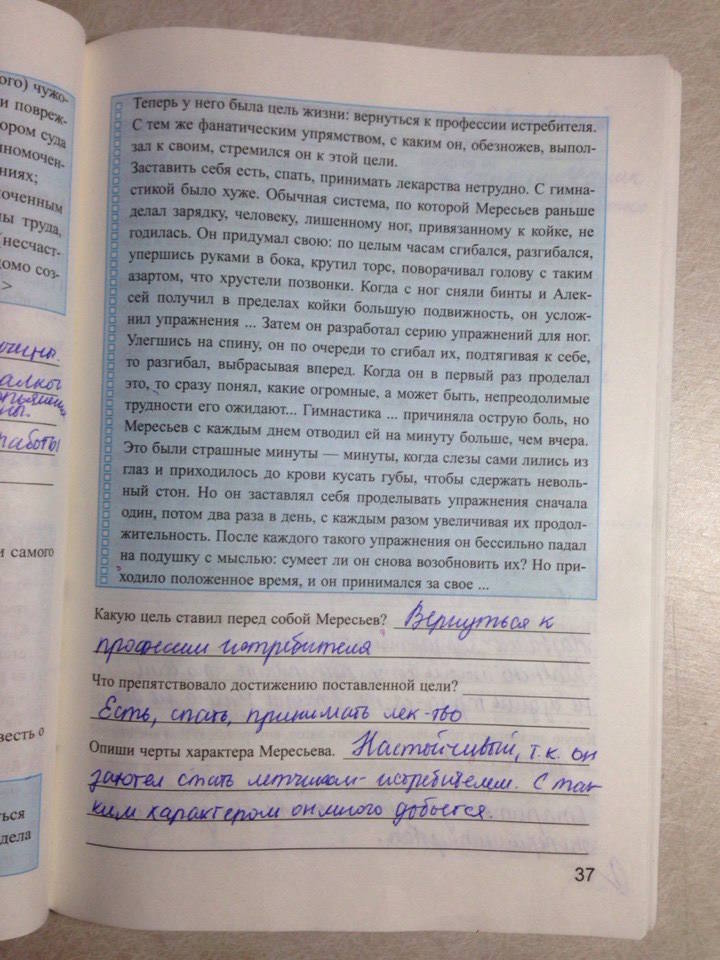 ого) чужо-
и повреж-
ором суда
лномочен-
ниях;
юченным
ны труда,
(несчаст-
домо соз-
>
работы
и самого
весть о
ться
дела
Теперь у него была цель жизни: вернуться к профессии истребителя.
С тем же фанатическим упрямством, с каким он, обезножев, выпол-
зал к своим, стремился он к этой цели.
Заставить себя есть, спать, принимать лекарства нетрудно. С гимна-
стикой было хуже. Обычная система, по которой Мересьев раньше
делал зарядку, человеку, лишенному ног, привязанному к койке, не
годилась. Он придумал свою: по целым часам сгибался, разгибался,
упершись руками в бока, крутил торс, поворачивал голову с таким
азартом, что хрустели позвонки. Когда с ног сняли бинты и Алек-
сей получил в пределах койки большую подвижность, он услож-
нил упражнения ... Затем он разработал серию упражнений для ног.
Улегшись на спину, он по очереди то сгибал их, подтягивая к себе,
то разгибал, выбрасывая вперед. Когда он в первый раз проделал
это, то сразу понял, какие огромные, а может быть, непреодолимые
трудности его ожидают... Гимнастика ... причиняла острую боль, но
Мересьев с каждым днем отводил ей на минуту больше, чем вчера.
Это были страшные минуты — минуты, когда слезы сами лились из
глаз и приходилось до крови кусать губы, чтобы сдержать неволь-
ный стон. Но он заставлял себя проделывать упражнения сначала
один, потом два раза в день, с каждым разом увеличивая их продол-
жительность. После каждого такого упражнения он бессильно падал
на подушку с мыслью: сумеет ли он снова возобновить их? Но при-
ходило положенное время, и он принимался за свое ...
Какую цель ставил перед собой Мересьев? Вернуться к
профессии истребителя
Что препятствовало достижению поставленной цели?
Есть, спать, принимать лек-тво
Опиши черты характера Мересьева. Настойчивый, т.к. он
захотел стать летчиком-истребителем. С та-
ким характером он много добьется.
37